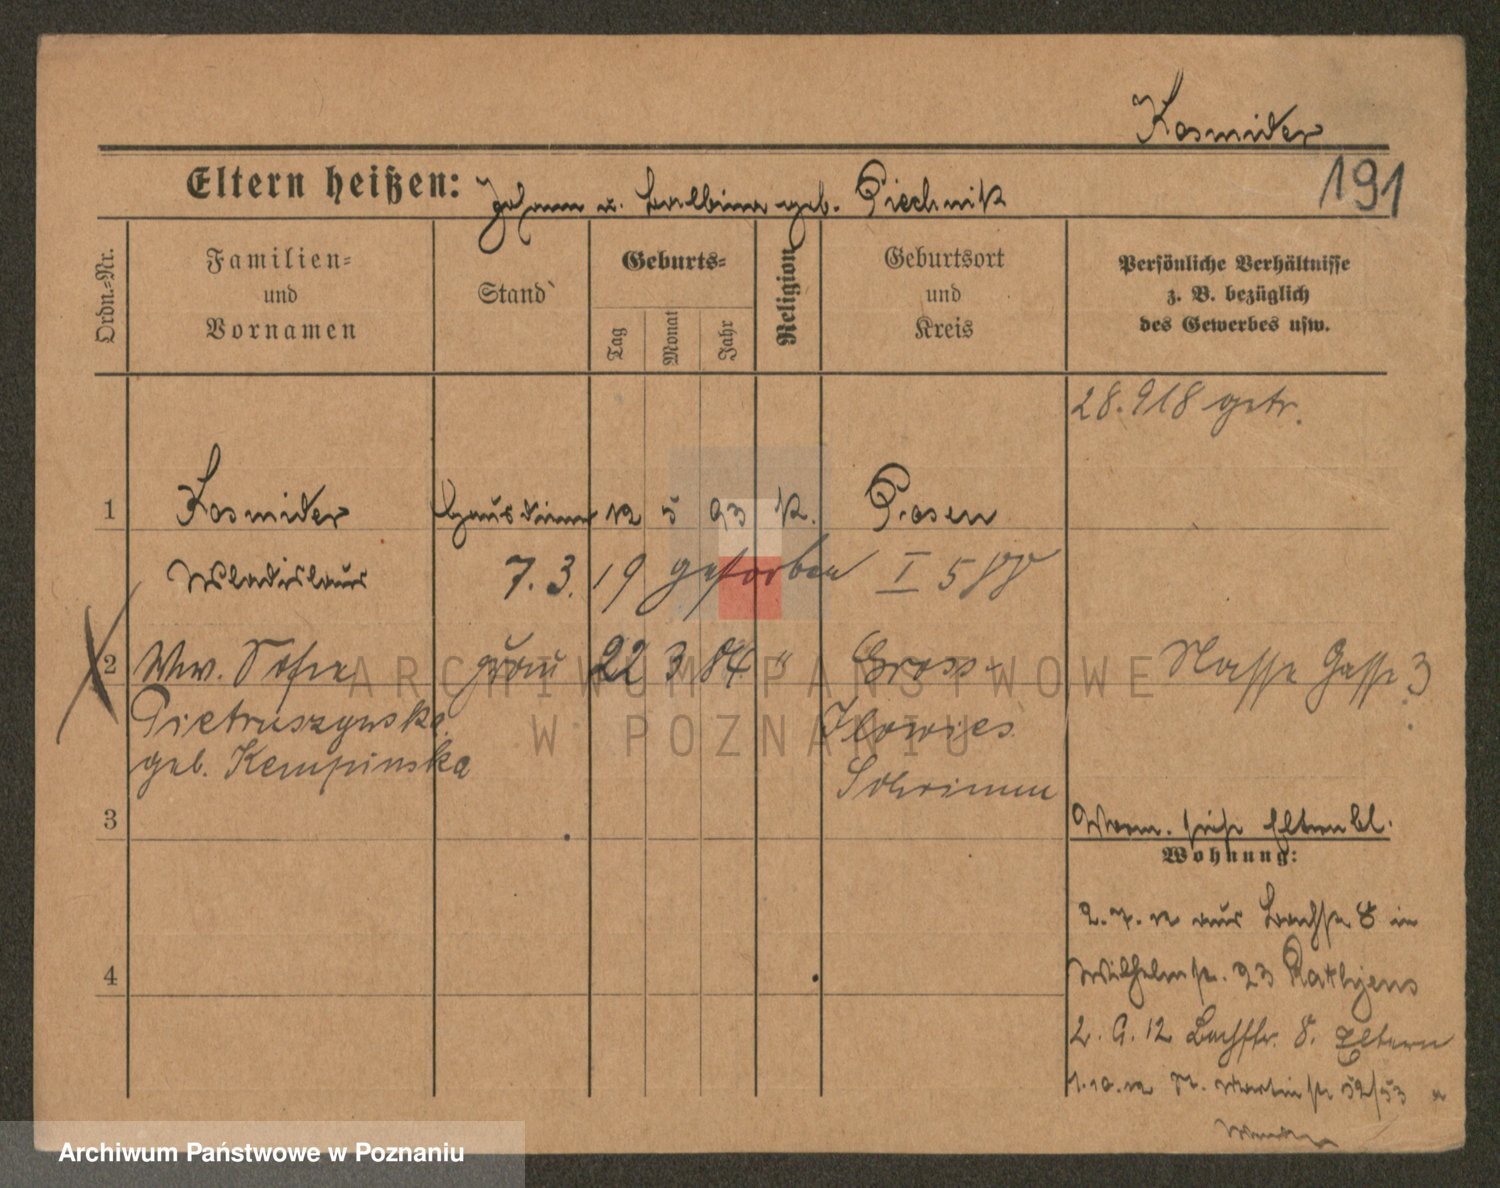 Kosmider
191
Eltern heißen: Johann u. Balbina geb. Piechnik
Ordn.-Nr.
Familien-
und
Vornamen
Stand
Geburts-
Tag
Monat
Jahr
Religion
Geburtsort
und
Kreis
Persönliche Verhältnisse
z. B. bezüglich
des Gewerbes usw.
28.9 18 getr.
1 Kosmider Hausdiener 12 5 93 K. Posen
Wladislaus 7. 3. 19 gestorben I 5
2 Ww. Sofie 22 3 84 " Gross- Nasse Gasse 3
Pietruszynska Ilowiec
geb. Kempinska Schrimm
3
Vorm. siehe Elternbl.
Wohnung:
2. 7. 12 aus Bachstr 8 in
4
Wilhelmstr. 23 Rathjens
2. 9. 12 Bachstr. 8. Eltern
1.10.12 St. Martinstr 52/53
ARCHIWUM PAŃSTWOWE
W POZNANIU
Archiwum Państwowe w Poznaniu